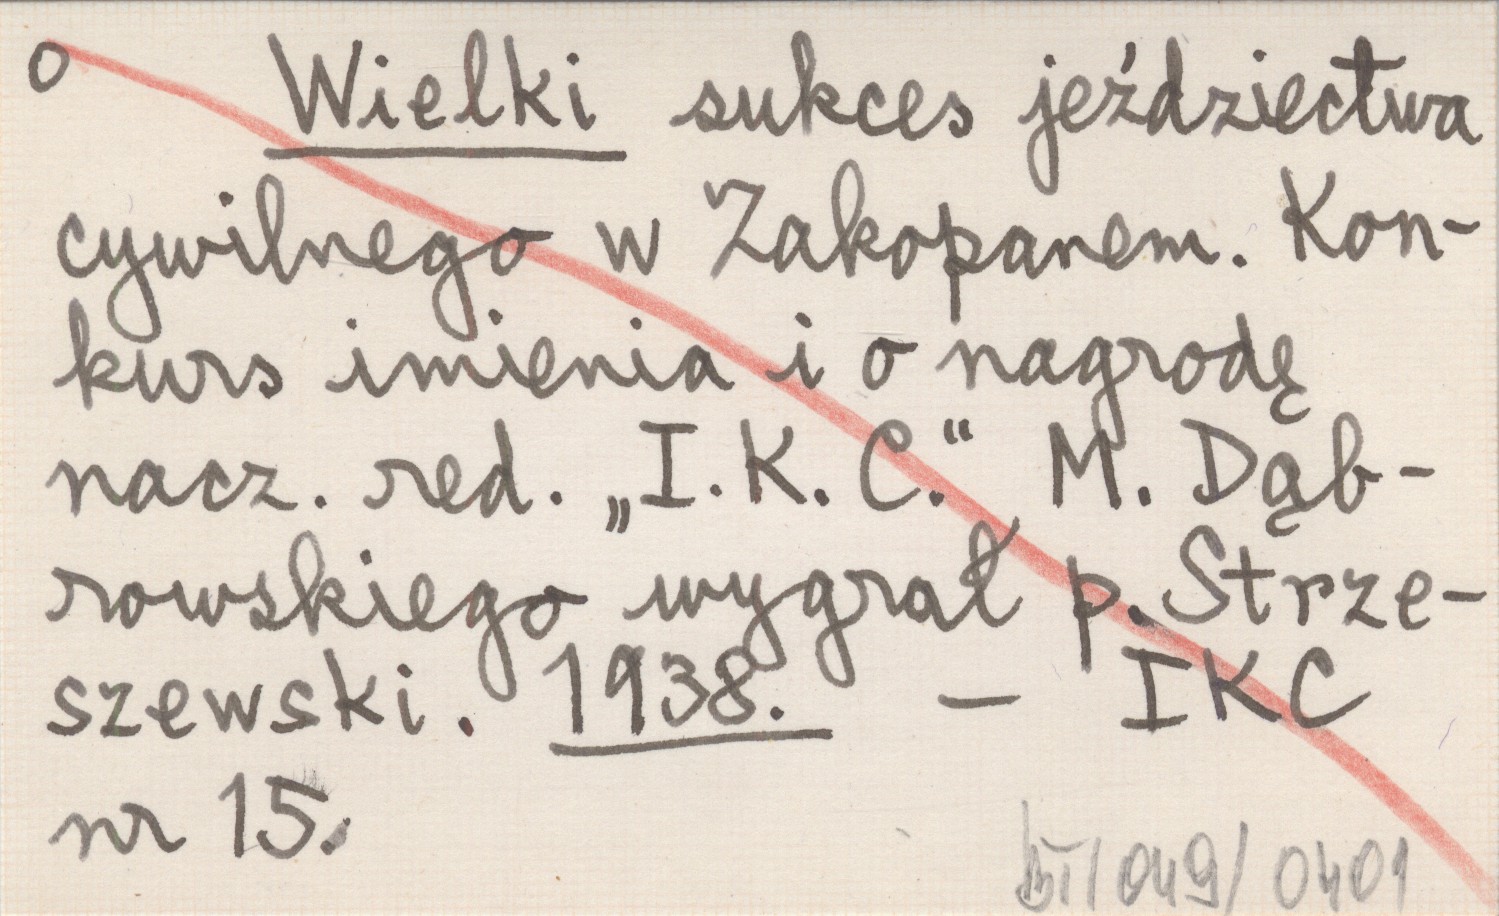 o Wielki sukces jeździectwa
cywilnego w Zakopanem. Kon-
kurs imienia i o nagrodę
nacz. red. „I.K.C.“ M. Dąb-
rowskiego wygrał p. Strze-
szewski. 1938. — IKC
nr 15.
/049/0401